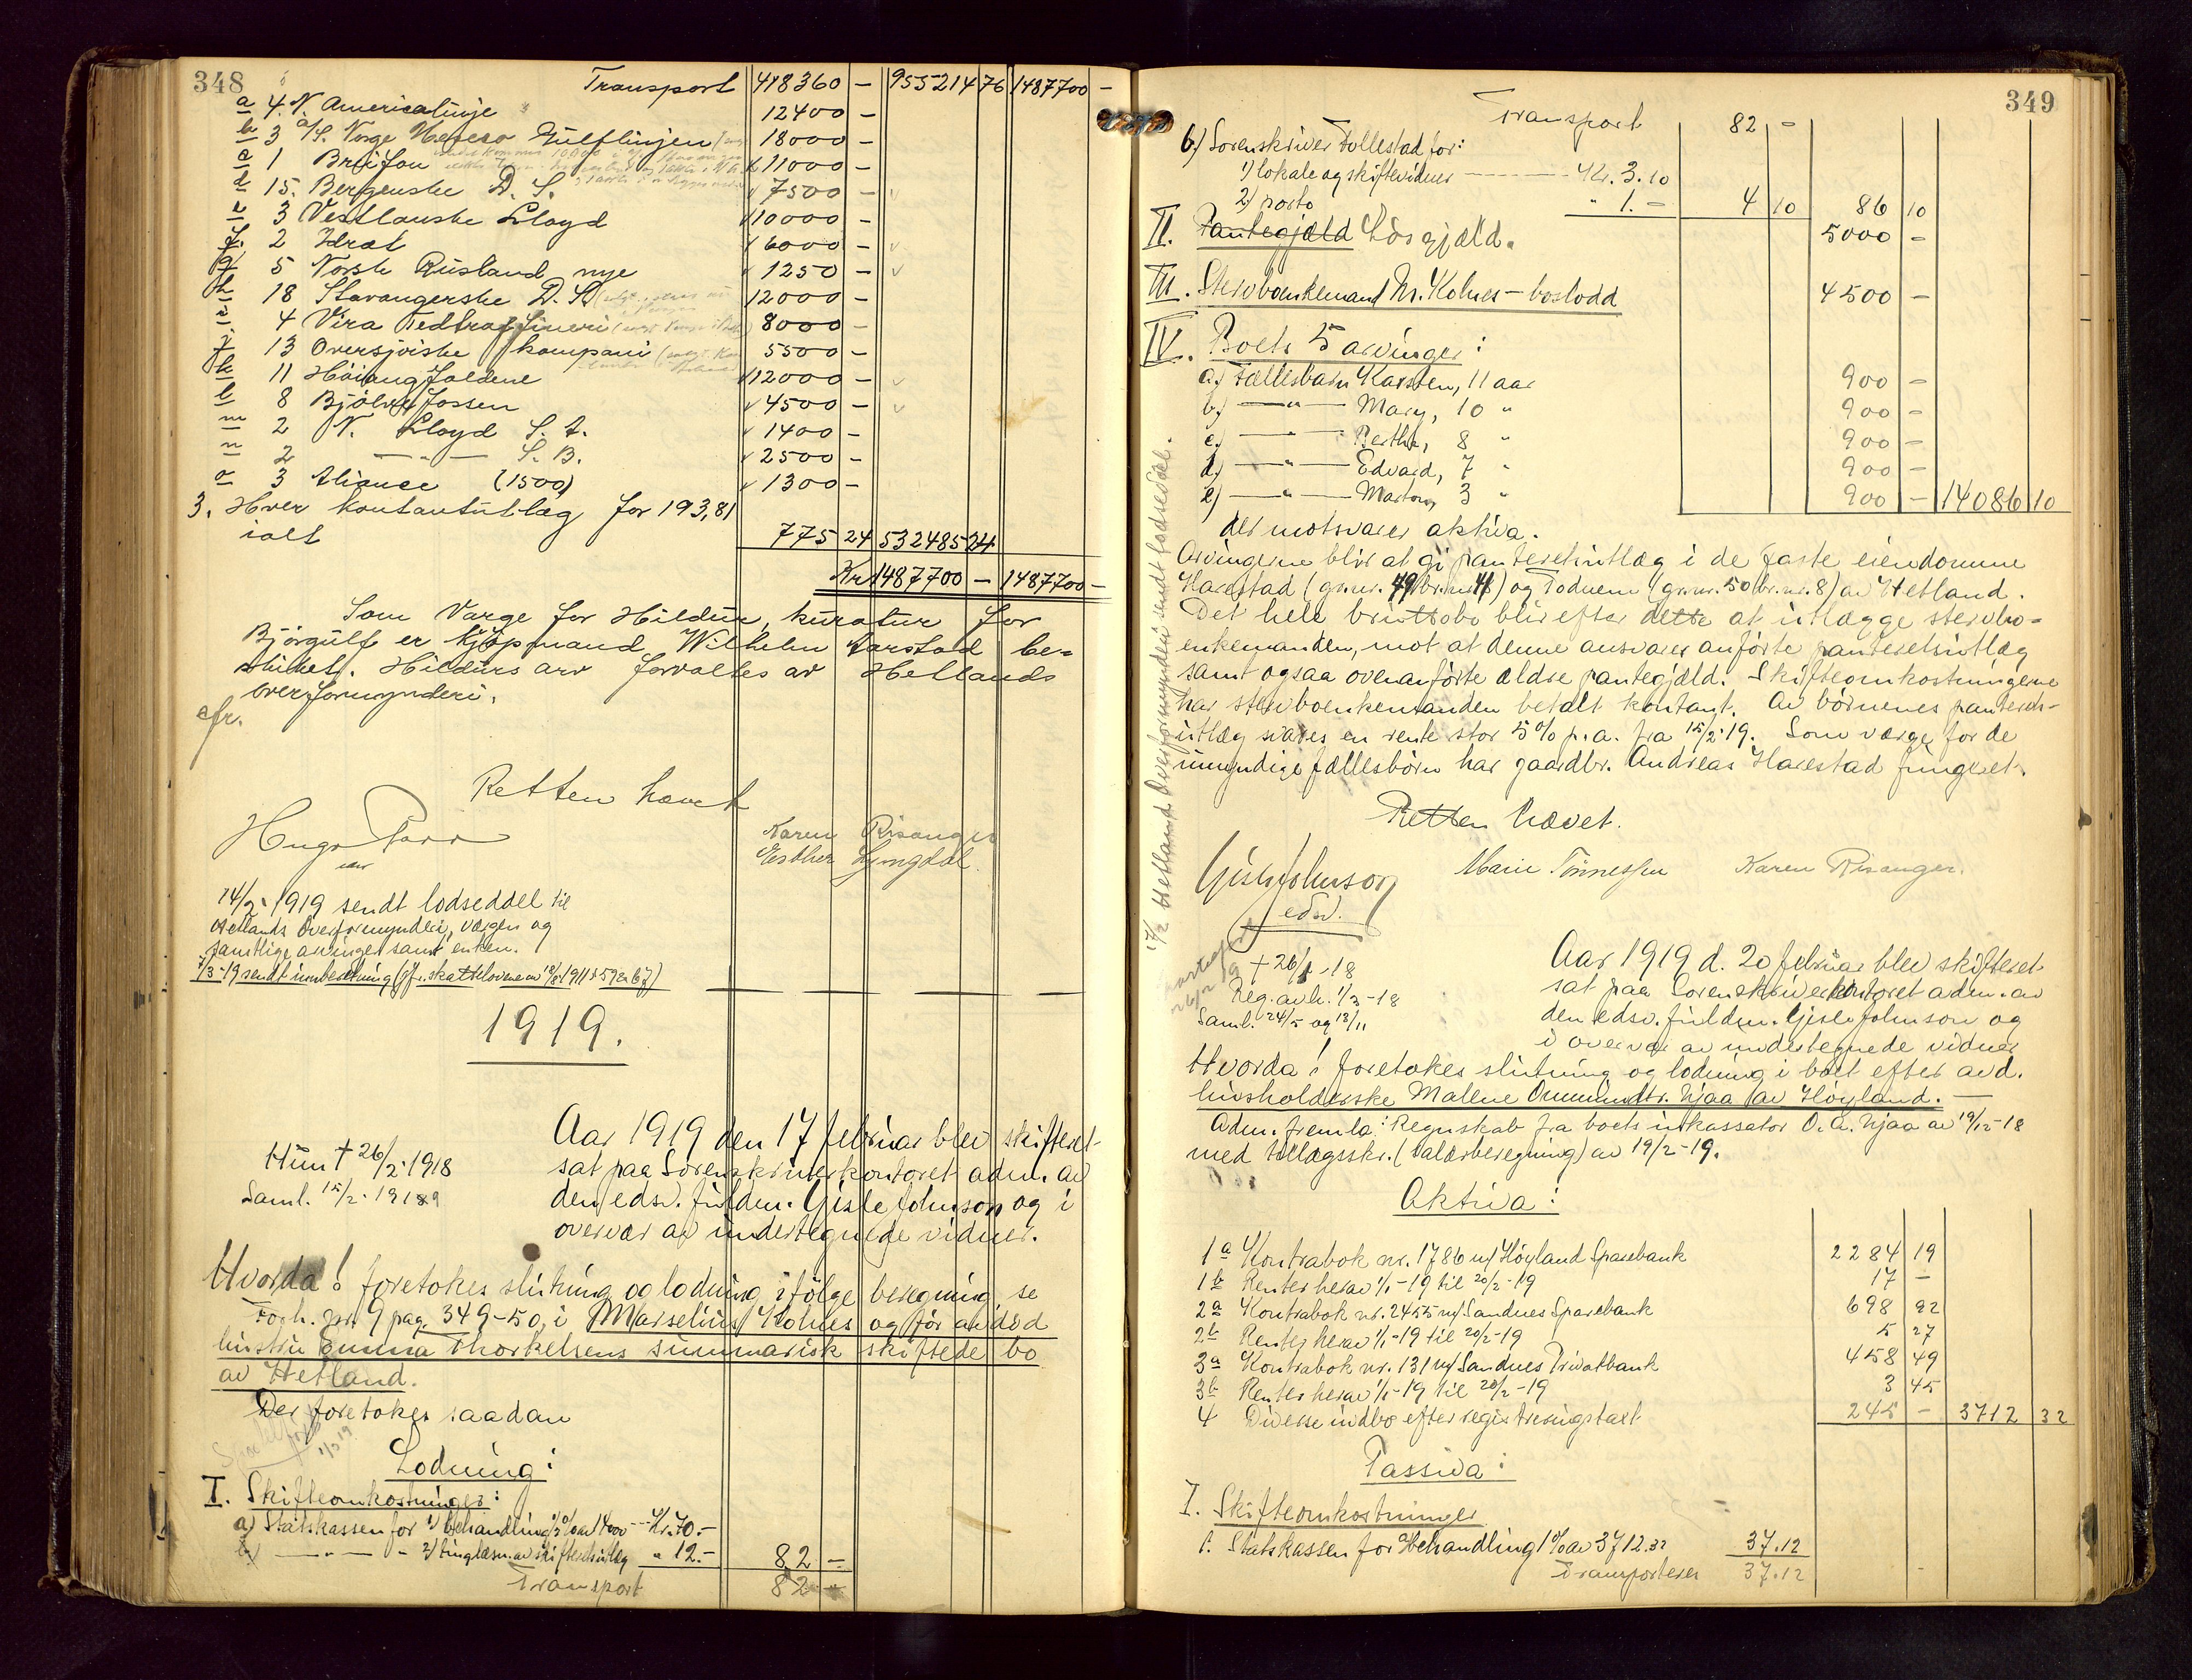 348
Transport 418360 – 955214 76 1487700 –
a 4 N. Americalinje 12400 –
b 3 a/S. Norge Mexico Gulflinjen 18000 –
c 1 Breifon 11000 –
d 15. Bergenske D. S. 7500 –
e 3 Vestlanske Lloyd 10000 –
f. 2 Idræt 6000 –
g 5 Norsk Rusland nye 1250 –
h 18 Stavangerske D. S. 12000 –
i 4 Vera Fedtraffineri 8000 –
j 13 Oversjøiske kompani 5500 –
k 11 Høiangfaldene 12000 –
l 8 Bjölvefossen 4500 –
m 2 N. Lloyd S. A. 1400 –
n 2 — " — S. B. 2500 –
o 3 Aliance (1500) 1300 –
3. Hver kontantutlæg for 193,81
ialt 775 24 532485 24
Kr. 1487700 – 1487700 –
Som Værge for Hildur, kurator for
Bjørgulf er kjøpmand Wilhelm Aarstad be=
skikket. Hildurs arv forvaltes av Hetlands
overformynderi.
cfr.
Retten hævet
Hugo Parr
Karen Risanger
Esther Lyngdal.
14/2-1919 sendt lodseddel til
Hetlands Overformynderi, værgen og
samtlige arvinger samt enken.
7/3-19 sendt innberetning
1919.
Aar 1919 den 17 februar blev skifteret
sat paa Sorenskriverkontoret adm. av
den edsv. fuldm. Gisle Johnson og i
overvær av undertegnede vidner.
Hun † 26/2-1918
Saml. 15/2-1919
Hvorda! foretokes slutning og lodning ifölge beregning, se
Forh. pr. 9 pag. 349-50, i Marselius Kolnes og før avdød
hustru Emma Thorkelsens summarisk skiftede bo
av Hetland.
Der foretokes saadan
Lodning:
I. Skifteomkostninger:
a) Statskassen for 1) behandling 1/2 % av 14000 --- Kr. 70.–
— " — " 2) tinglæsn. av skifteretsutlæg " 12.– 82 –
Transport 82 –
349
Transport 82 –
b) Sorenskriver Follestad for:
1) lokale og skiftevidner ——— Kr. 3.10
2) porto " 1.– 4 10 86 10
II. Pantegjæld Løsgjæld. 5000 –
III. Stervboenkemand M. Kolnes – boslodd 4500 –
IV. Boets 5 arvinger:
a) Fællesbarn Karsten, 11 aar 900 –
b) — " — Mary, 10 " 900 –
c) — " — Bertha, 8 " 900 –
d) — " — Edvard, 7 " 900 –
e) — " — Marton, 3 " 900 – 14086 10
det motsvarer aktiva.
Arvingerne blir at gi panteretsutlæg i de faste eiendomme
Harestad (gr.nr. 49 br.nr. 4) og Todnem (gr.nr. 50 br.nr. 8) av Hetland.
Det hele bruttobo blir efter dette at utlægge stervbo-
enkemanden, mot at denne ansvarer anførte panteretsutlæg
samt ogsaa ovenanførte ældre pantegjæld. Skifteomkostningerne
har stervboenkemanden betalt kontant. Av børnenes panterets-
utlæg svares en rente stor 5 % p. a. fra 15/2-19. Som værge for de
umyndige fællesbørn har gaardbr. Andreas Harestad fungeret.
17/2 Hetland Overformynderi sendt lodseddel.
Retten hævet.
Gisle Johnson
edsv.
Marie Tönnessen Karen Risanger.
† 26/1-18
Reg. avh. 1/3-18
Saml. 24/5 og 18/11
Aar 1919 d. 20 februar blev skifteret
sat paa Sorenskriverkontoret adm. av
den edsv. fuldm. Gisle Johnson og
i overvær av undertegnede vidner
Hvorda! foretokes slutning og lodning i boet efter avd.
husholderske Malene Ommundsdtr. Njaa av Høyland. —
Adm. fremla: Regnskab fra boets inkassator O. A. Njaa av 19/12-18
med tillægsskr. (salærberegning) av 19/2-19.
Aktiva:
1a Kontrabok nr. 1786 m/ Høyland Sparebank 2284 19
1b Renter herav 1/1-19 til 20/2-19 17 –
2a Kontrabok nr. 2455 m/ Sandnes Sparebank 698 92
2b Renter herav 1/1-19 til 20/2-19 5 27
3a Kontrabok nr. 131 m/ Sandnes Privatbank 458 49
3b Renter herav 1/1-19 til 20/2-19 3 45
4 Diverse indbo efter registreringstakst 245 – 3712 32
Passiva:
I. Skifteomkostninger
1. Statskassen for a) behandling 1 % av 3712.32 37.12
Transporteres 37.12